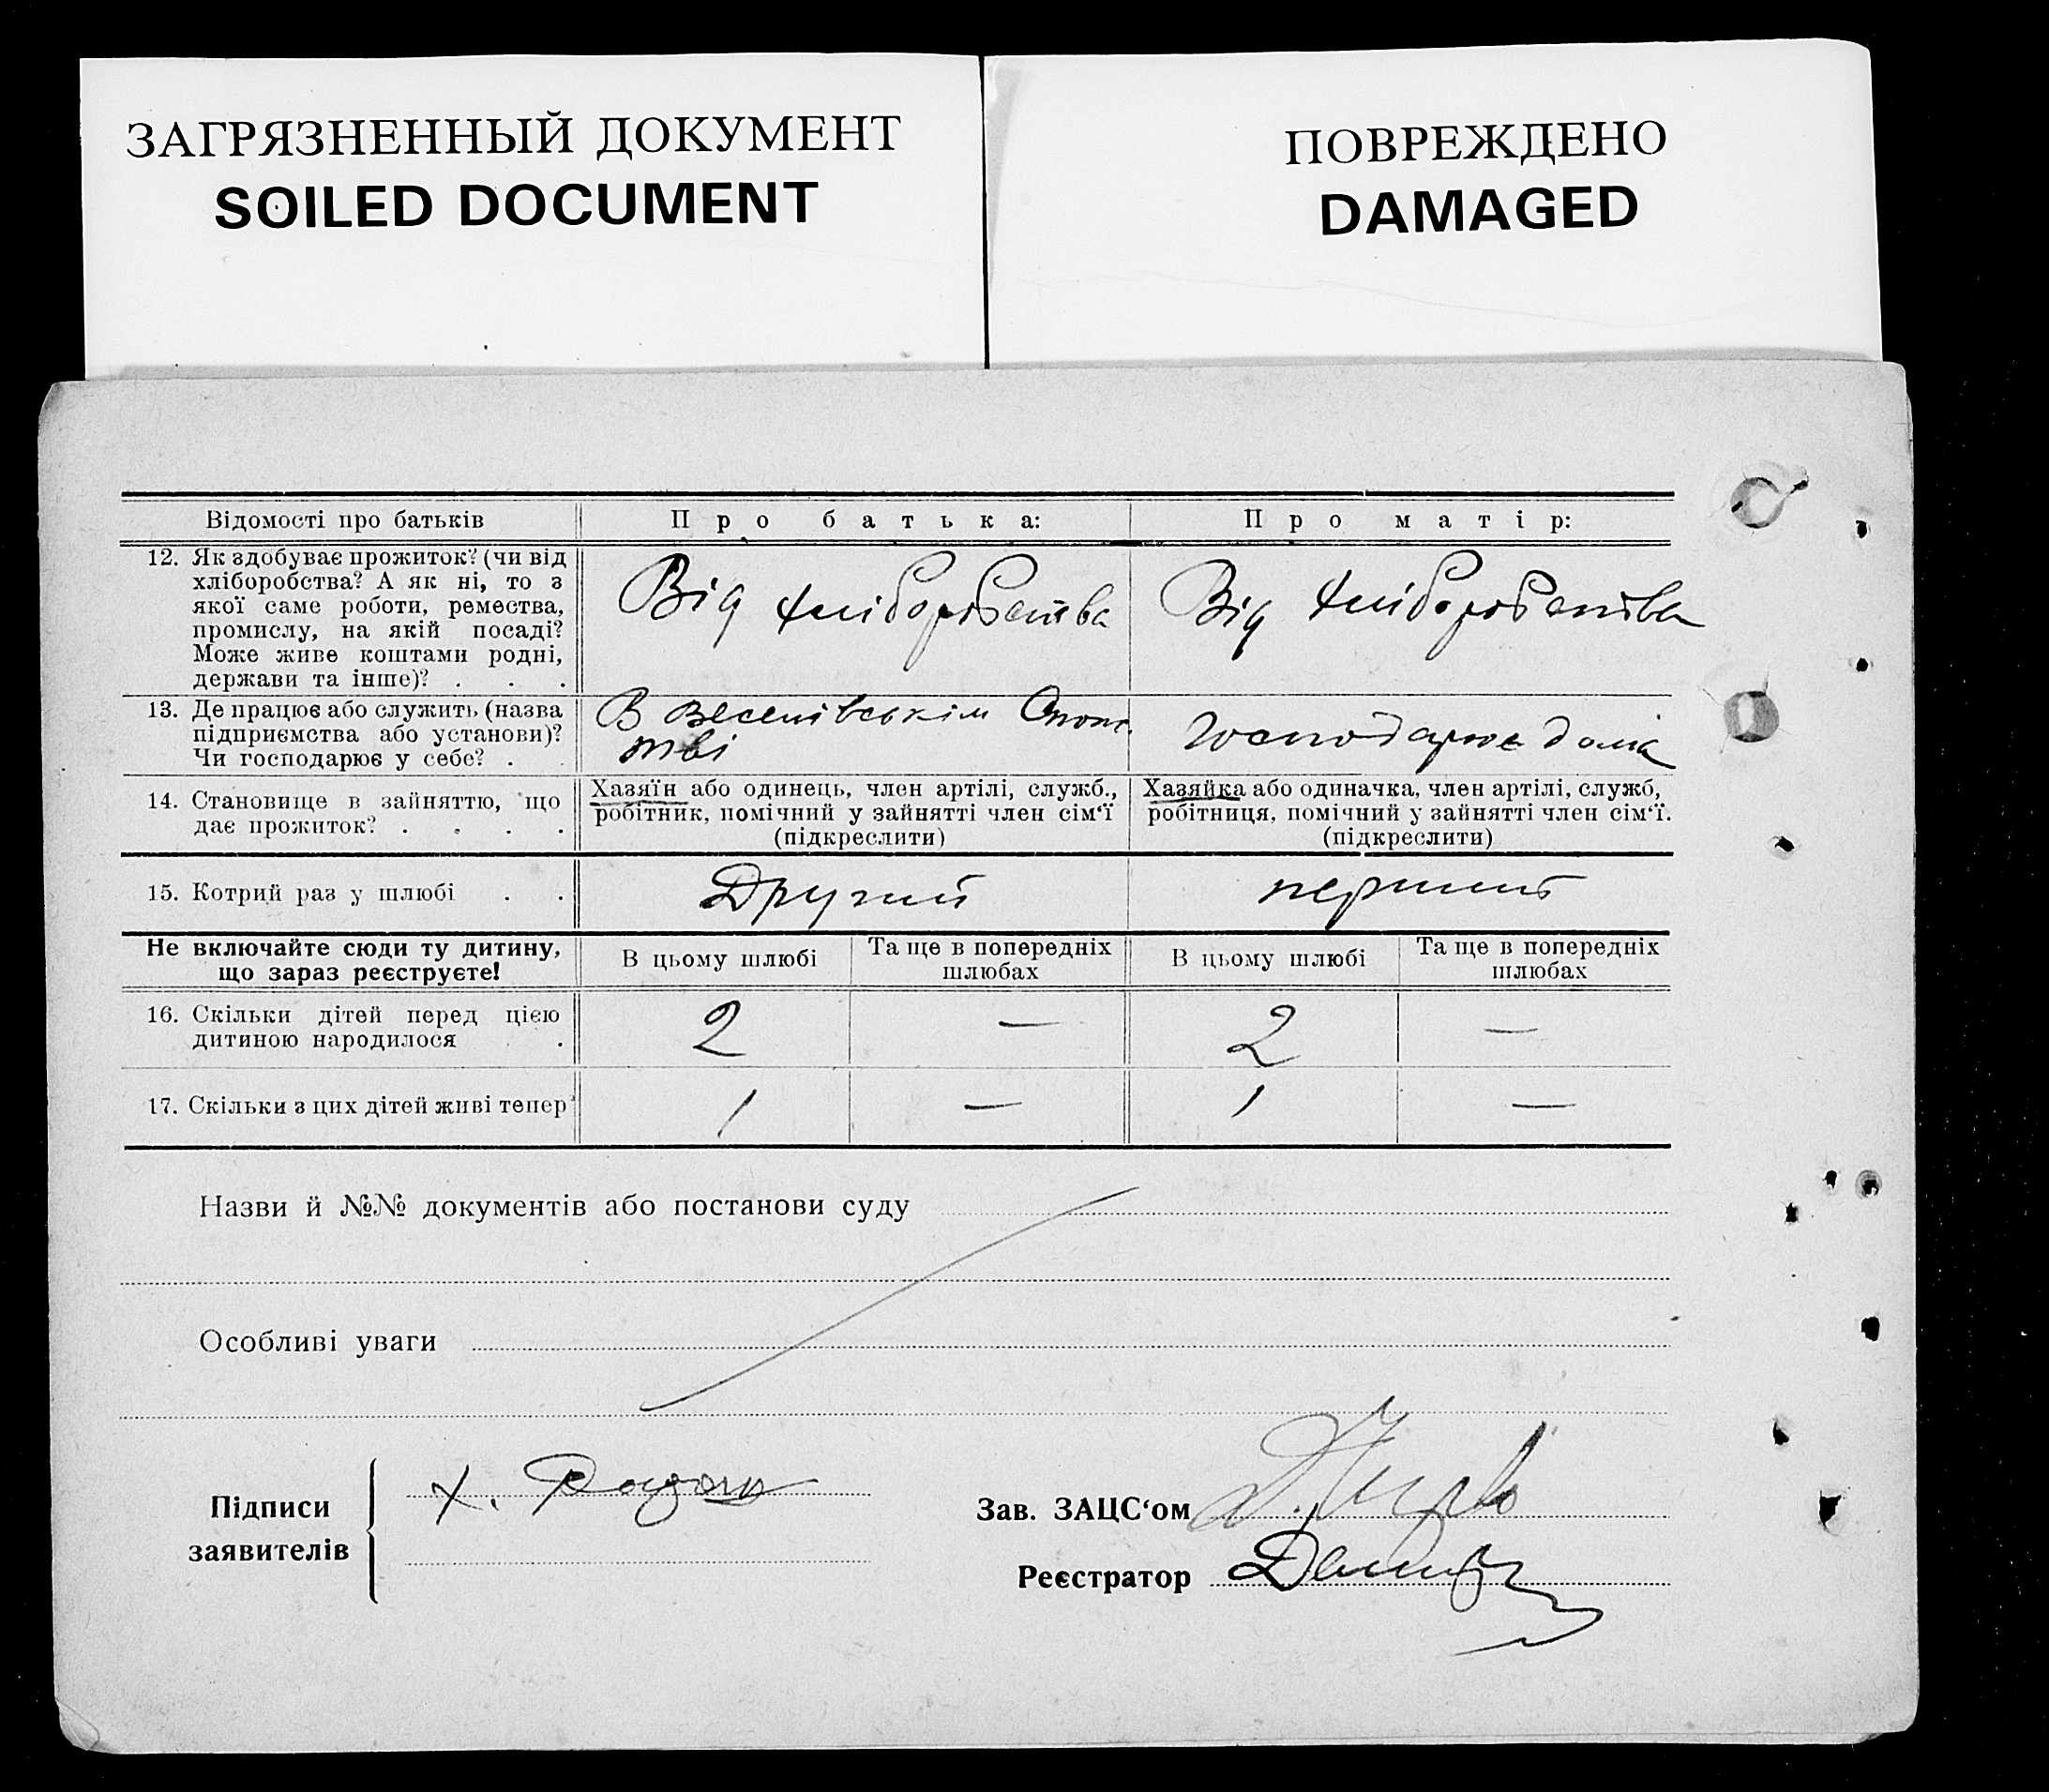 ЗАГРЯЗНЕННЫЙ ДОКУМЕНТ
SOILED DOCUMENT
ПОВРЕЖДЕНО
DAMAGED
Відомості про батьків
Про батька:
Про матір:
12. Як здобуває прожиток? (чи від
хліборобства? А як ні, то з
якої саме роботи, ремества,
промислу, на якій посаді?
Може живе коштами родні,
держави та інше)? . . .
Від хліборобства
Від хліборобства
13. Де працює або служить (назва
підприємства або установи)?
Чи господарює у себе? . .
В
тві
Господарює дома
14. Становище в зайняттю, що
дає прожиток? . . . .
Хазяїн або одинець, член артілі, служб.,
робітник, помічний у зайнятті член сім‘ї
(підкреслити)
Хазяйка або одиначка, член артілі, служб,
робітниця, помічний у зайнятті член сім‘ї.
(підкреслити)
15. Котрий раз у шлюбі . .
Другий
перший
Не включайте сюди ту дитину,
що зараз реєструєте!
В цьому шлюбі
Та ще в попередніх
шлюбах
В цьому шлюбі
Та ще в попередніх
шлюбах
16. Скільки дітей перед цією
дитиною народилося .
2
—
2
—
17. Скільки з цих дітей живі тепер
1
—
1
—
Назви й №№ документів або постанови суду
Особливі уваги
Підписи
заявителів
Х.
Зав. ЗАЦС‘ом
Реєстратор